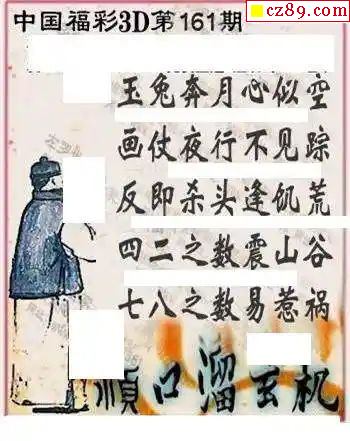 cz89.com
中国福彩3D第161期
玉兔奔月心似空
画仗夜行不见踪
反即杀头逢饥荒
四二之数震山谷
七八之数易惹祸
顺口溜玄机